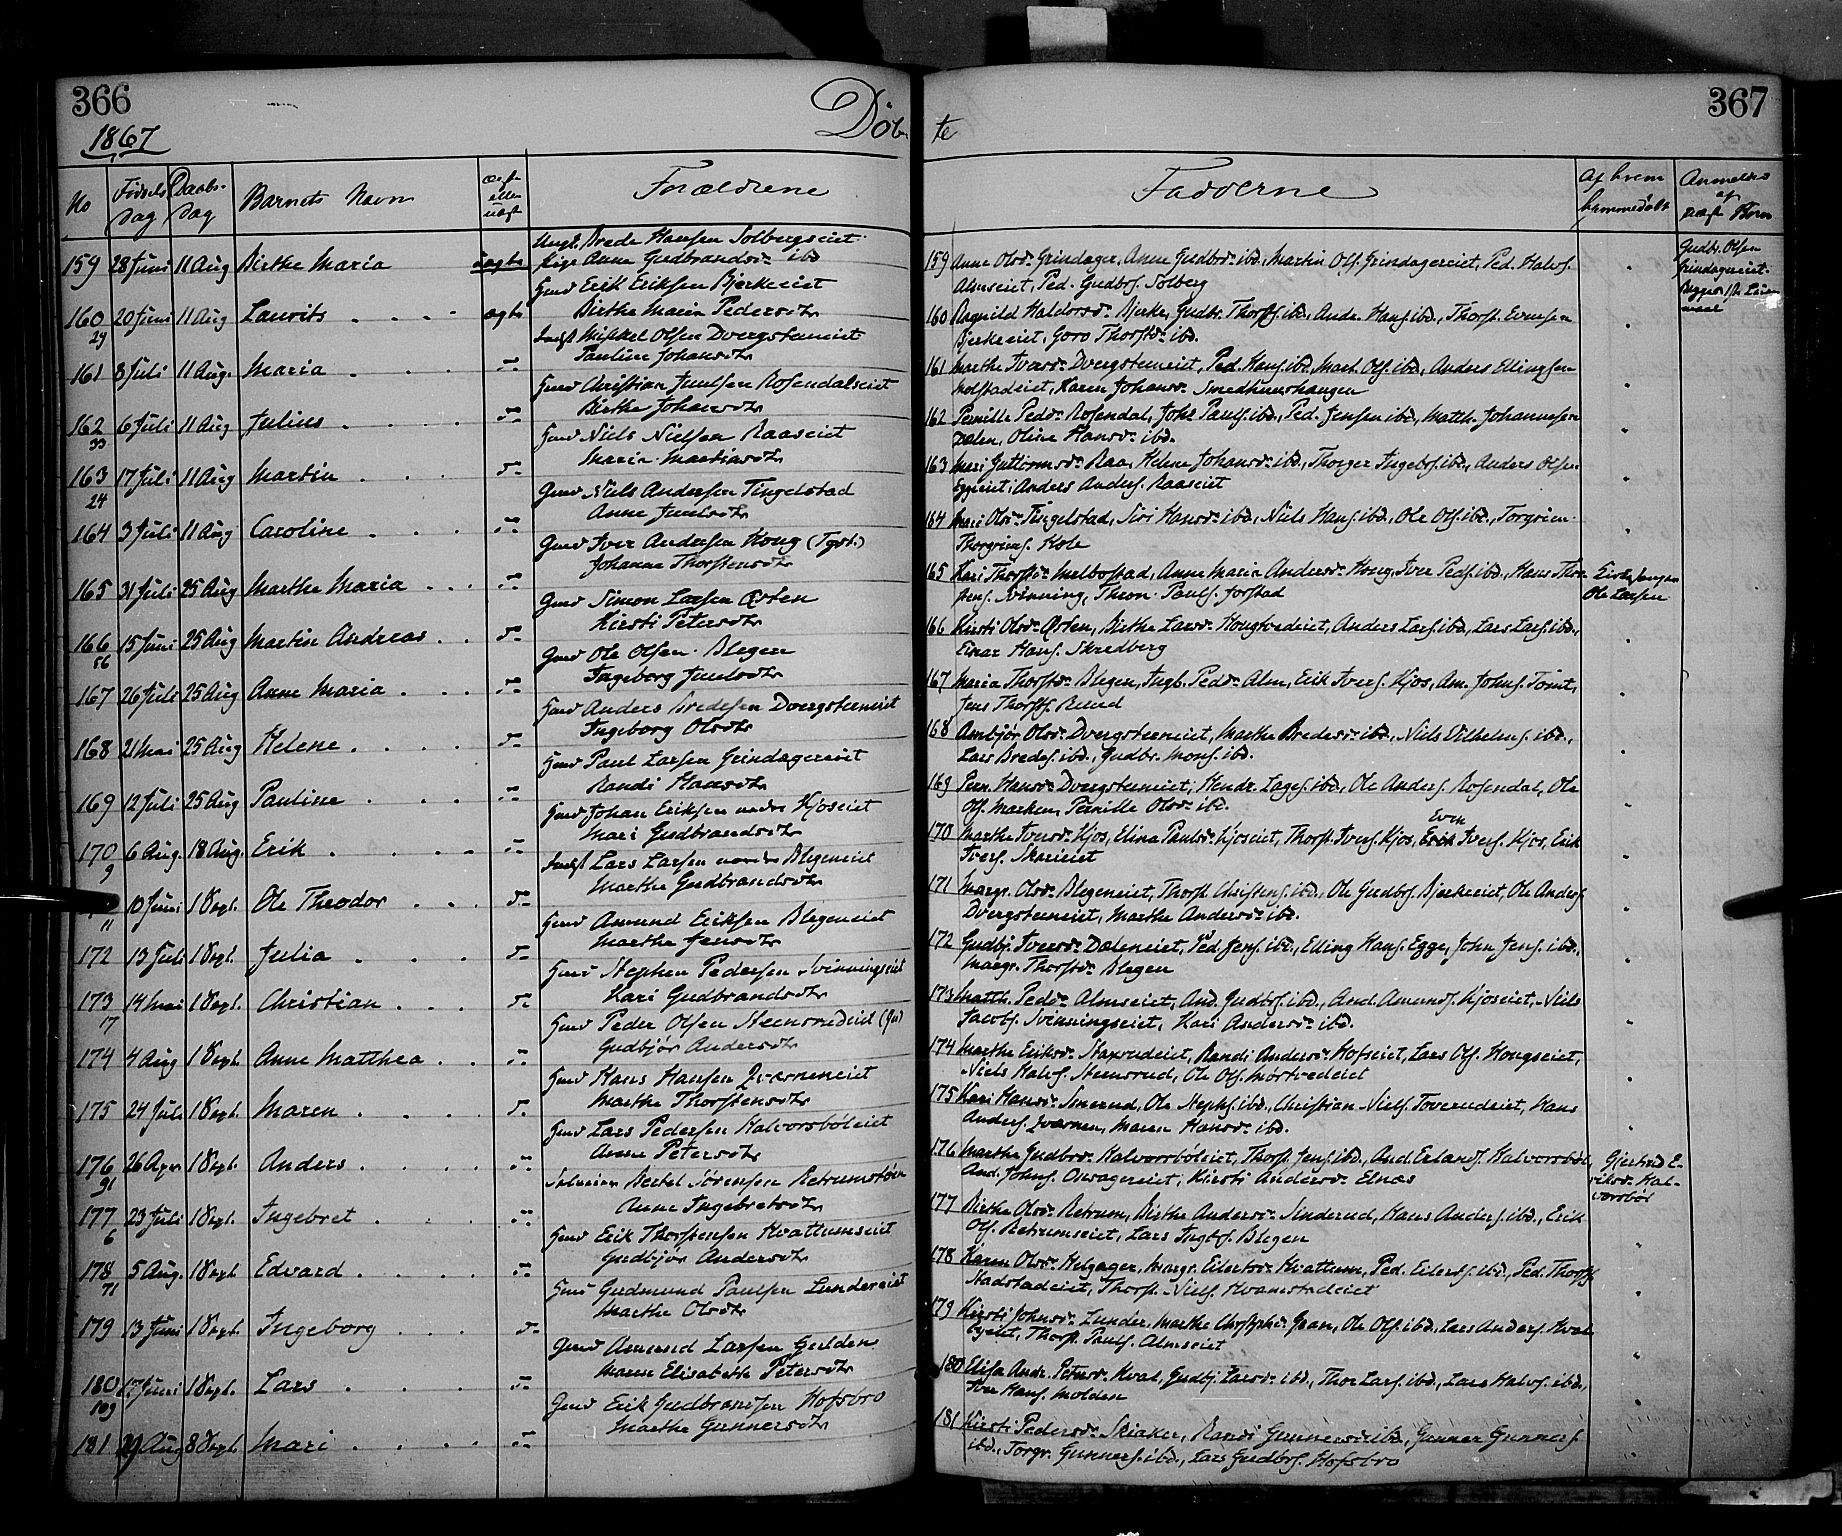 366
1867
Døb-
No
Fødsels Dag
Daabs-Dag
Barnets Navn
ægte eller uægt
Forældrene
159 28 Juni 11 Aug Birthe Maria uægte
Ungk. Brede Hansen Solbergseiet
Pige Anne Gudbrandsdr ibd
160 20 Juni 11 Aug Laurits ægte
29
Gmd Erik Eriksen Bjerkeeiet
Birthe Marie Pedersdtr
161 3 Juli 11 Aug. Maria
Indst Mikkel Olsen Dvergsteneiet
Pauline Johansdtr
162 6 Juli 11 Aug Julius
33
Gmd Christian Juulsen Rosendalseiet
Birthe Johansdtr
163 17 Juli 11 Aug Martin
24
Gmd Niels Nielsen Raaseiet
Marie Mathiasdtr
164 3 Juli 11 Aug Caroline
Gmd Niels Andersen Tingelstad
Anne Juulsdtr
165 31 Juli 25 Aug Marthe Maria
Gmd Iver Andersen Houg (Tgst.)
Johanne Thorstensdtr
166 15 Juni 25 Aug Martin Andreas
56
Gmd Simon Larsen Østen
Kirsti Petersdtr
167 26 Juli 25 Aug Anne Maria
Gmd Ole Olsen Blegen
Ingeborg Juulsdtr
168 21 Mai 25 Aug Helene
Gmd Anders Bredesen Dvergsteneiet
Ingeborg Olsdtr
169 12 Juli 25 Aug Pauline
Gmd Paul Larsen Grindagereiet
Randi Hansdtr
170 6 Aug. 18 Aug. Erik
9
Gmd Johan Eriksen under Kjoseiet
Mari Gudbrandsdtr
10 Juni 1 Sept. Ole Theodor
11
Indst Lars Larsen under Blegeneiet
Marthe Gudbrandsdtr
172 13 Juli 1 Sept. Julia
Gmd Amund Eriksen Blegeneiet
Marthe Jensdtr
173 14 Mai 1 Sept. Christian
17
Gmd Stephen Pedersen Svinningseiet
Kari Gudbrandsdtr
174 4 Aug 1 Sept. Anne Matthea
Gmd Peder Olsen Steensrudeiet
Gudbjør Andersdtr
175 24 Juli 1 Sept. Maren
Gmd Hans Hansen Qværneneiet
Marthe Thorstensdtr
176 26 Apr. 1 Sept. Anders
91
Gmd Lars Pedersen Halvorsbøleiet
Anne Petersdtr
177 23 Juli 1 Sept. Ingebret
6
Bertel Sørensen
Anne Ingebretsdtr
178 5 Aug. 1 Sept Edvard
71
Gmd Erik Thorstensen Hvattumseiet
Gudbjør Andersdtr
179 13 Juni 1 Sept. Ingeborg
Gmd Gudmund Paulsen Lundereiet
Marthe Olsdtr
180 17 Juni 1 Sept. Lars
109
Gmd Amund Larsen Gulden
Maren Elisabeth Petersdtr
181 29 Aug 8 Sept. Mari
Gmd Erik Gudbrandsen Hofsbro
Marthe Gunnersdtr
367
te
Fadderne
Af hvem hjemmedøbt
Anmeldes af uægt Børn
159 Anne Olsdr Grindager, Anne Gudbrdr ibd, Martin Ols. Grindagereiet, Ped. Halvs.
Almseiet, Ped. Gudbs. Solberg
Gudbr. Olsen
Grindagereiet
160 Ragnild Haldorsdr Bjerke, Gudbr. Thorsts. ibd, Andr. Hans. ibd., Thorst. Evensen
Bjerkeeiet, Goro Thorstdr ibd.
161 Marthe Iversdr Dvergsteneiet, Ped. Hans. ibd, Mart. Ols. ibd., Anders Ellingsen
Karen Johansdr Smedhuushaugen
162 Pernille Pedsdr Rosendal, Johs Pauls. ibd., Ped. Jensen ibd, Matth. Johannesen
Dalen, Oline Hansdr ibd.
163 Mari Guttormsdr Raa, Helene Johansdr ibd., Thorger Ingebs. ibd., Anders Olsen
Eggeeiet, Anders Anders. Raaseiet
164 Mari Olsdr Tingelstad, Siri Hansdr ibd., Niels Hans. ibd., Ole Ols. ibd., Torgrim
Thorgrims. Hole
165 Kari Thorstdr Melbostad, Anne Marie Andersdr Houg, Iver Peds. ibd., Hans Thor-
stens. Svinning, Thron Pauls. Jorstad
Kirkesanger
Ole Larsen
166 Kirsti Olsdr Østen, Birthe Larsdr Hougtvedeiet, Anders Lars. ibd., Lars Lars. ibd.,
Einar Hans. Skredberg
167 Maria Thorstdr Blegen, Ingb. Pedsdr Alm, Erik Ivers. Kjos, Am. Johns. Tomt,
Jens Thorsts.
168 Ambjør Olsdr Dvergsteneiet, Marthe Bredesdr ibd., Niels Vilhelms. ibd.,
Lars Bredes. ibd., Gudbr. Mons. ibd.
169 Pern. Hansdr Dvergsteneiet, Hendr. Lages. ibd., Ole Anders. Rosendal, Ole
Ols. Marken, Pernille Olsdr ibd.
170 Marthe Iversdr Kjos, Elina Paulsdr Kjoseiet, Thorst. Ivers. Kjos, Even Ivers. Kjos, Erik
Ivers.
171 Margr. Olsdr Blegeneiet, Thorst. Christens. ibd., Ole Gudbs. Bjerkeeiet, Ole Anders.
Dvergsteneiet, Marthe Andersdr ibd.
172 Gudbj. Iversdr Daleneiet, Ped. Jens. ibd., Elling Hans. Egge, John Jens. ibd.,
Margr. Thorstdr Blegen
173 Matth. Pedsdr Almseiet, And. Gudbs. ibd., And. Amunds. Kjoseiet, Niels
Jacobs. Svinningseiet, Kari Andersdr ibd.
174 Marthe Eriksdr Staxrudeiet, Randi Andersdr Hofseiet, Lars Ols. Hougseiet,
Niels Halvs. Steensrud, Ole Ols.
175 Kari Hansdr Smerud, Ole Steph. ibd., Christian Niels. Toverudeiet, Hans
Anders. Qværnen, Maren Hansdr ibd.
176 Marthe Gudbrdr Halvorsbøleiet, Thorst. Jens. ibd., And. Erlands. Halvorsbøl,
And. Johns. Kirsti Andersdr Elnæs
Gjertrud E-
riksdr Hal-
vorsbøl
177 Birthe Olsdr Retrum, Birthe Andersdr Sinderud, Hans Anders. ibd., Erik
Ols. Retrumseiet, Lars Ingbs. Blegen
178 Karen Olsdr Helgager, Margr. Eilertsdr Hvattum, Ped. Eilerts. ibd., Ped. Thorsts.
Stadstadeiet, Thorst. Niels. Hvamstadeiet
179 Kirsti Johnsdr Lunder, Marthe Gran, Ole Ols. ibd., Lars Anders.
Thorst. Pauls. Almseiet
180 Elise Andr. Petersdr Hval, Gudbj. Larsdr ibd., Thor Lars. ibd., Lars Halvs. ibd.,
Iver Hans. Molden
181 Kirsti Pedersdr Skiaker, Randi Gunnersdr ibd., Gunner Gunners.
ibd., Torgr. Gunners. ibd., Lars Gudbs. Hofsbro